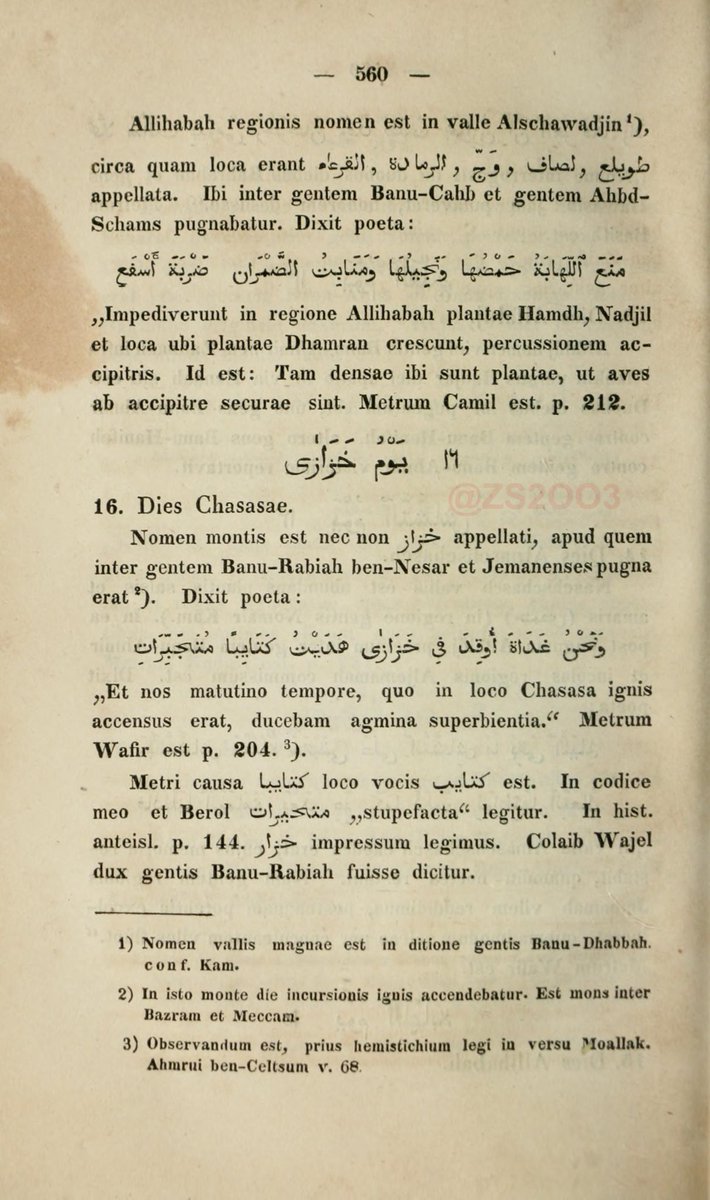 — 560 —
Allihabah regionis nomen est in valle Alschawadjin¹),
circa quam loca erant طويلع, لصاف, وَجّ, الرمادة, القرعاء
appellata. Ibi inter gentem Banu-Cahb et gentem Ahbd-
Schams pugnabatur. Dixit poeta:
مَنَعَ ٱللِّهَابَةَ حَمْضُهَا وَنَجِيلُهَا وَمَنَابِتُ الضَّمْرَانِ ضَرْبَةَ أَسْفَعِ
„Impediverunt in regione Allihabah plantae Hamdh, Nadjil
et loca ubi plantae Dhamran crescunt, percussionem ac-
cipitris. Id est: Tam densae ibi sunt plantae, ut aves
ab accipitre securae sint. Metrum Camil est. p. 212.
١٦ يَوْمُ خَزَازَى
@ZS2OO3
16. Dies Chasasae.
Nomen montis est nec non خزاز appellati, apud quem
inter gentem Banu-Rabiah ben-Nesar et Jemanenses pugna
erat ²). Dixit poeta:
وَنَحْنُ غَدَاةَ أُوقِدَ فِي خَزَازَى هَدَيْتُ كَتَايِبًا مُتَجَبِّرَاتٍ
„Et nos matutino tempore, quo in loco Chasasa ignis
accensus erat, ducebam agmina superbientia.“ Metrum
Wafir est p. 204. ³).
Metri causa كتايبا loco vocis كتايب est. In codice
meo et Berol متحيرات „stupefacta“ legitur. In hist.
anteisl. p. 144. خزار impressum legimus. Colaib Wajel
dux gentis Banu-Rabiah fuisse dicitur.
1) Nomen vallis magnae est in ditione gentis Banu-Dhabbah.
conf. Kam.
2) In isto monte die incursionis ignis accendebatur. Est mons inter
Bazram et Meccam.
3) Observandum est, prius hemistichium legi in versu Moallak.
Ahmrui ben-Celtsum v. 68.